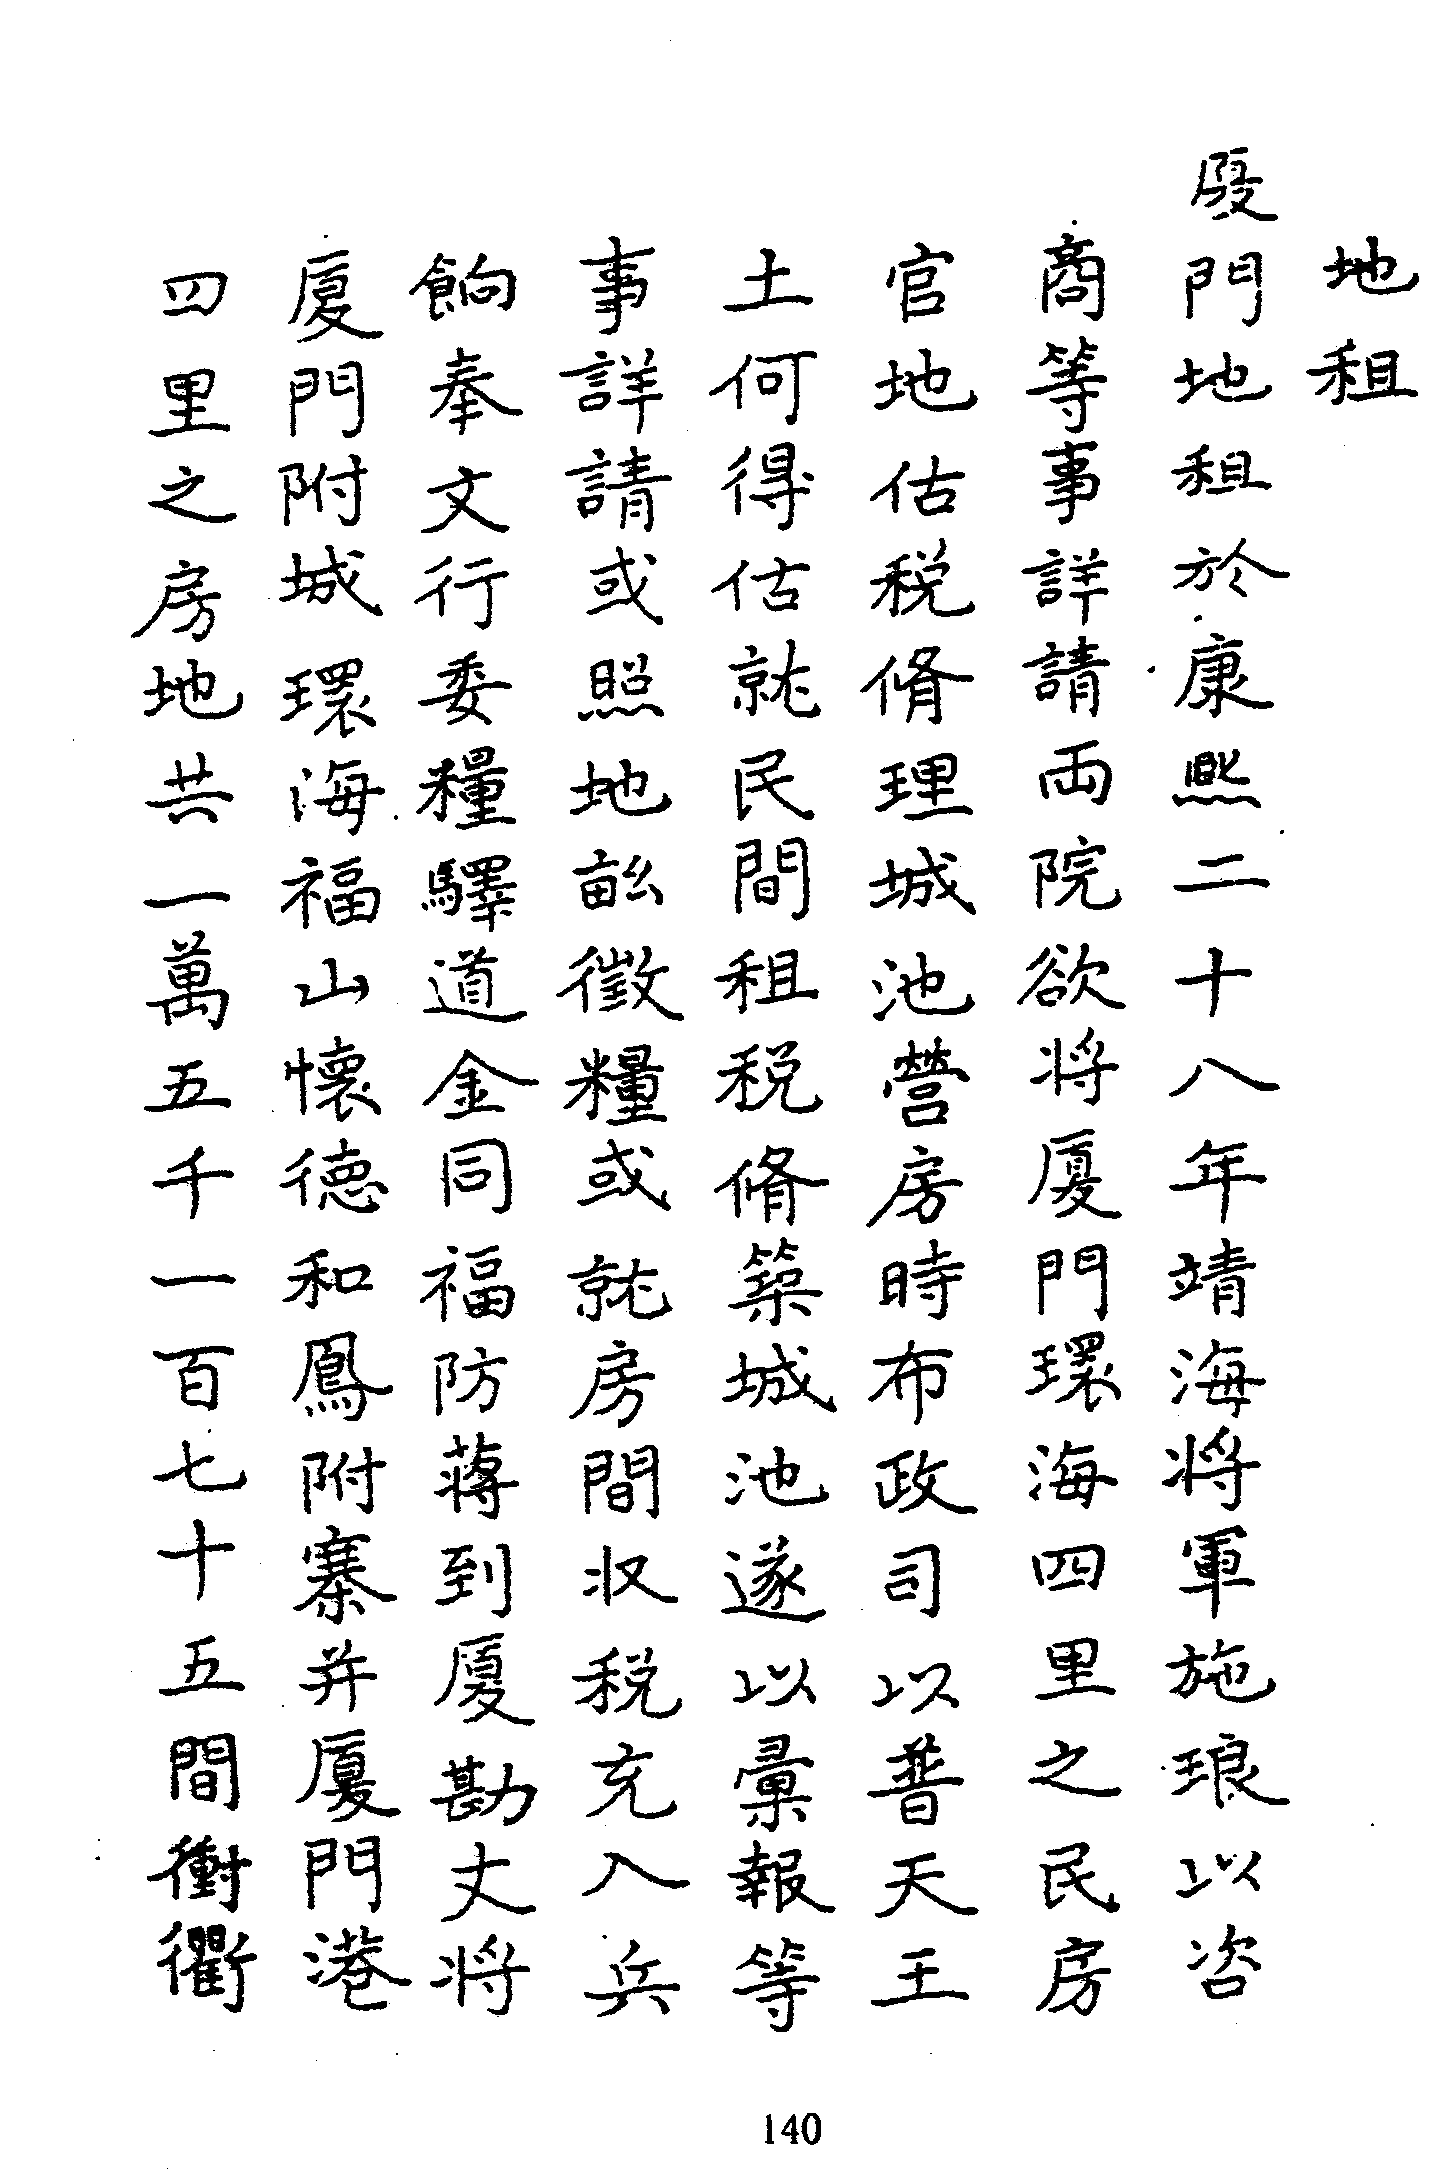 地租
厦門地租於康熙二十八年靖海將軍施琅以咨
商等事詳請両院欲将厦門環海四里之民房
官地估税脩理城池營房時布政司以普天王
土何得估就民間租税脩築城池遂以彙報等
事詳請或照地畝徵糧或就房間収税充入兵
餉奉文行委糧驛道金同福防蔣到厦勘丈将
厦門附城環海福山懷德和鳳附寨并厦門港
四里之房地共一萬五千一百七十五間衝衢
140